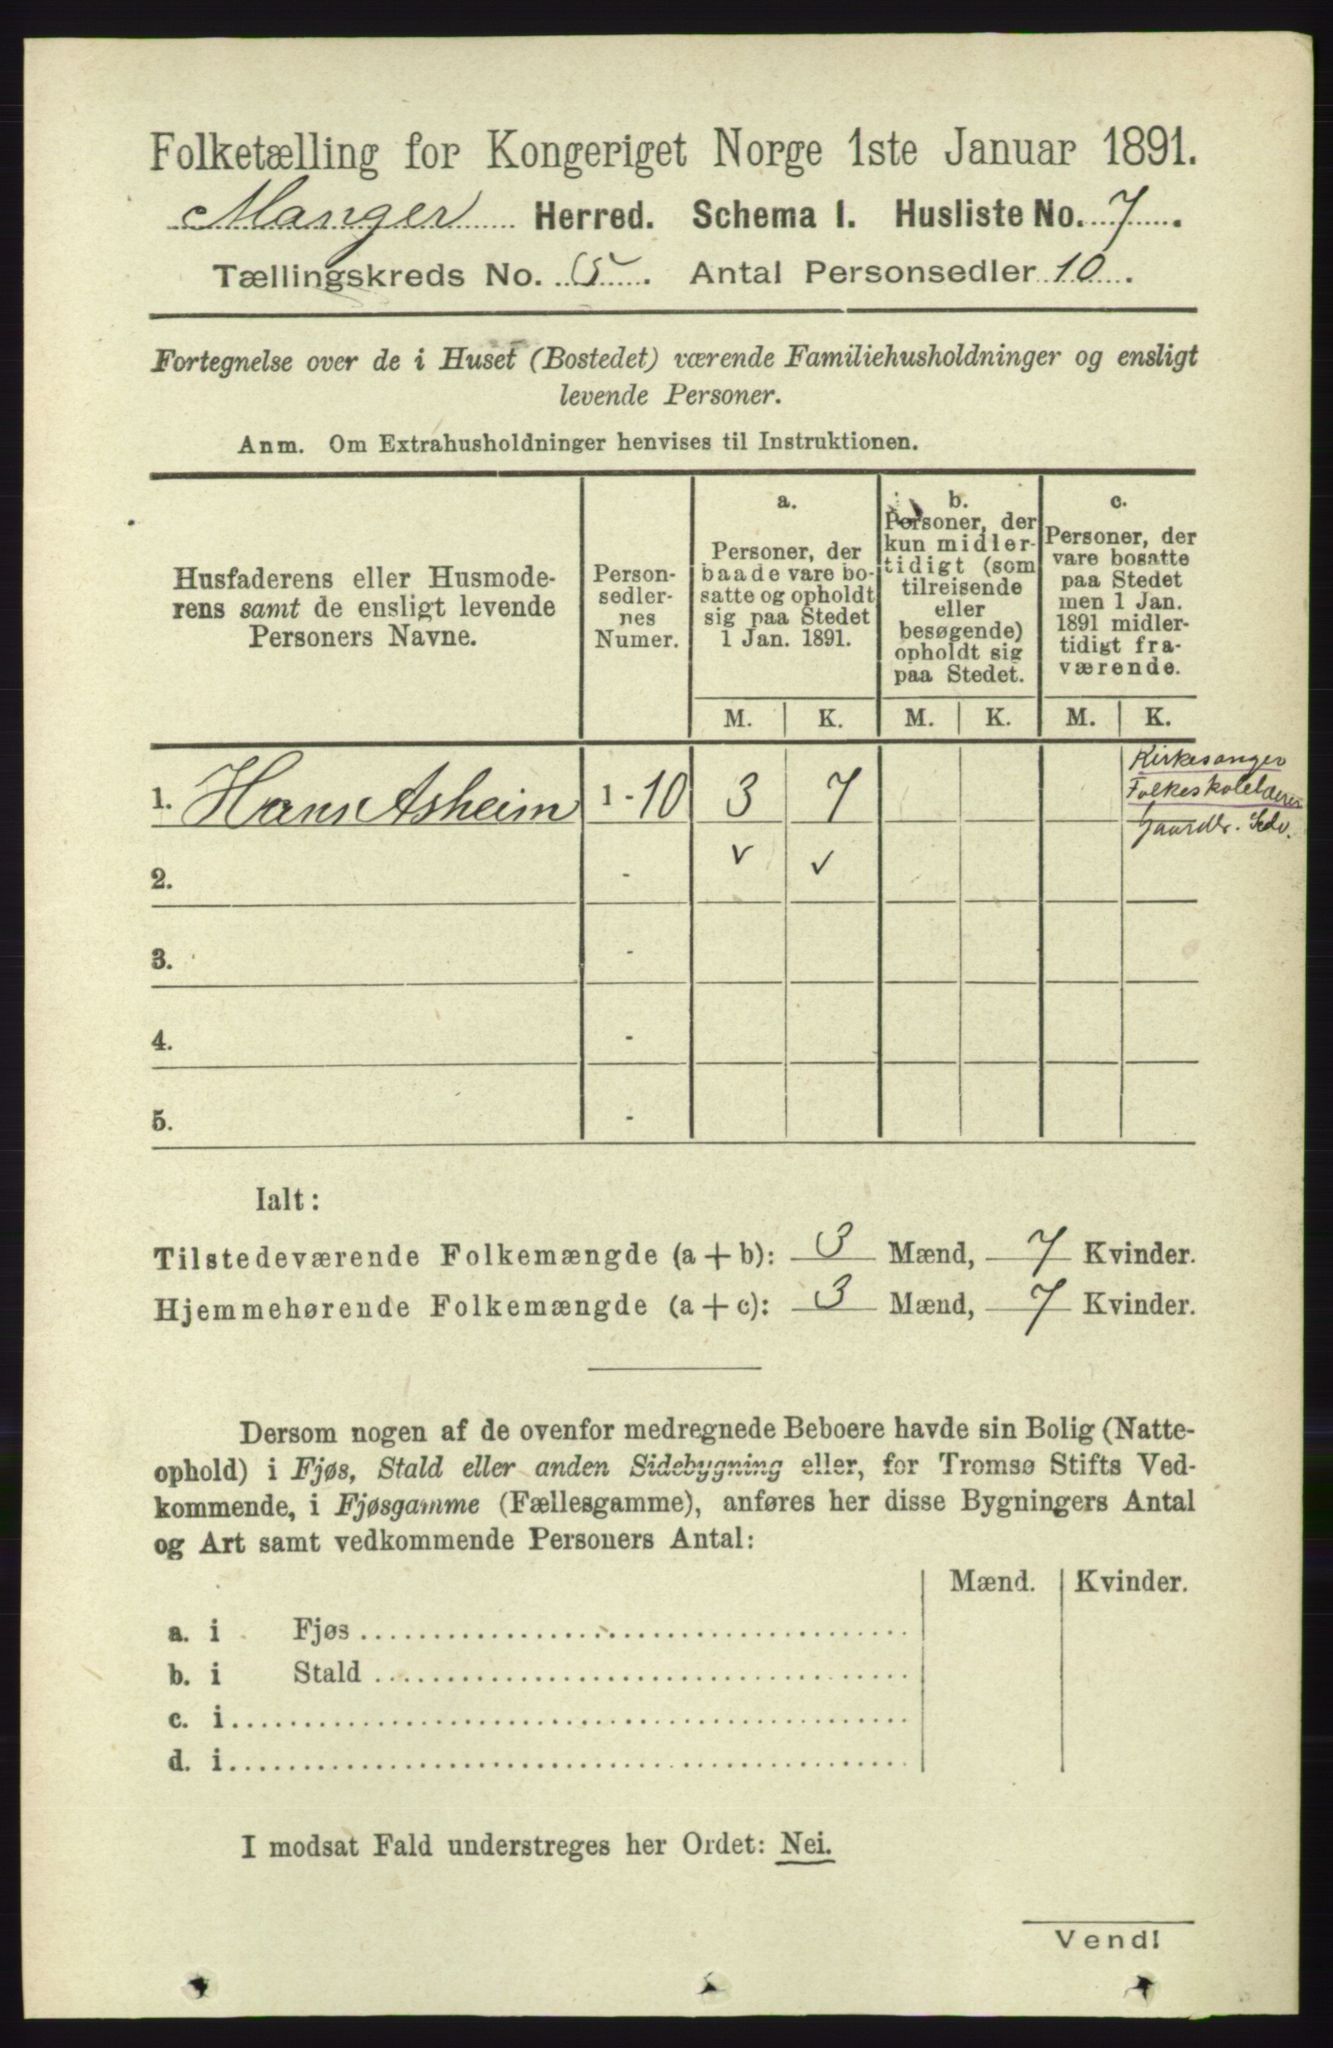 Folketælling for Kongeriget Norge 1ste Januar 1891.
Manger Herred. Schema I. Husliste No. 7.
Tællingskreds No. 5. Antal Personsedler 10.
Fortegnelse over de i Huset (Bostedet) værende Familiehusholdninger og ensligt
levende Personer.
Anm. Om Extrahusholdninger henvises til Instruktionen.
Husfaderens eller Husmode-
rens samt de ensligt levende
Personers Navne.
Person-
sedler-
nes
Numer.
a.
Personer, der
baade vare bo-
satte og opholdt
sig paa Stedet
1 Jan. 1891.
b.
Personer, der
kun midler-
tidigt (som
tilreisende
eller
besøgende)
opholdt sig
paa Stedet.
c.
Personer, der
vare bosatte
paa Stedet
men 1 Jan.
1891 midler-
tidigt fra-
værende.
M. K. M. K. M. K.
1. Hans Asheim 1 - 10 3 7
Kirkesanger
Folkeskolelærer
Gaardbr. Selv.
2. -
3. -
4. -
5. -
Ialt:
Tilstedeværende Folkemængde (a + b): 3 Mænd, 7 Kvinder.
Hjemmehørende Folkemængde (a + c): 3 Mænd, 7 Kvinder.
Dersom nogen af de ovenfor medregnede Beboere havde sin Bolig (Natte-
ophold) i Fjøs, Stald eller anden Sidebygning eller, for Tromsø Stifts Ved-
kommende, i Fjøsgamme (Fællesgamme), anføres her disse Bygningers Antal
og Art samt vedkommende Personers Antal:
Mænd. Kvinder.
a. i Fjøs
b. i Stald
c. i
d. i
I modsat Fald understreges her Ordet: Nei.
Vend!